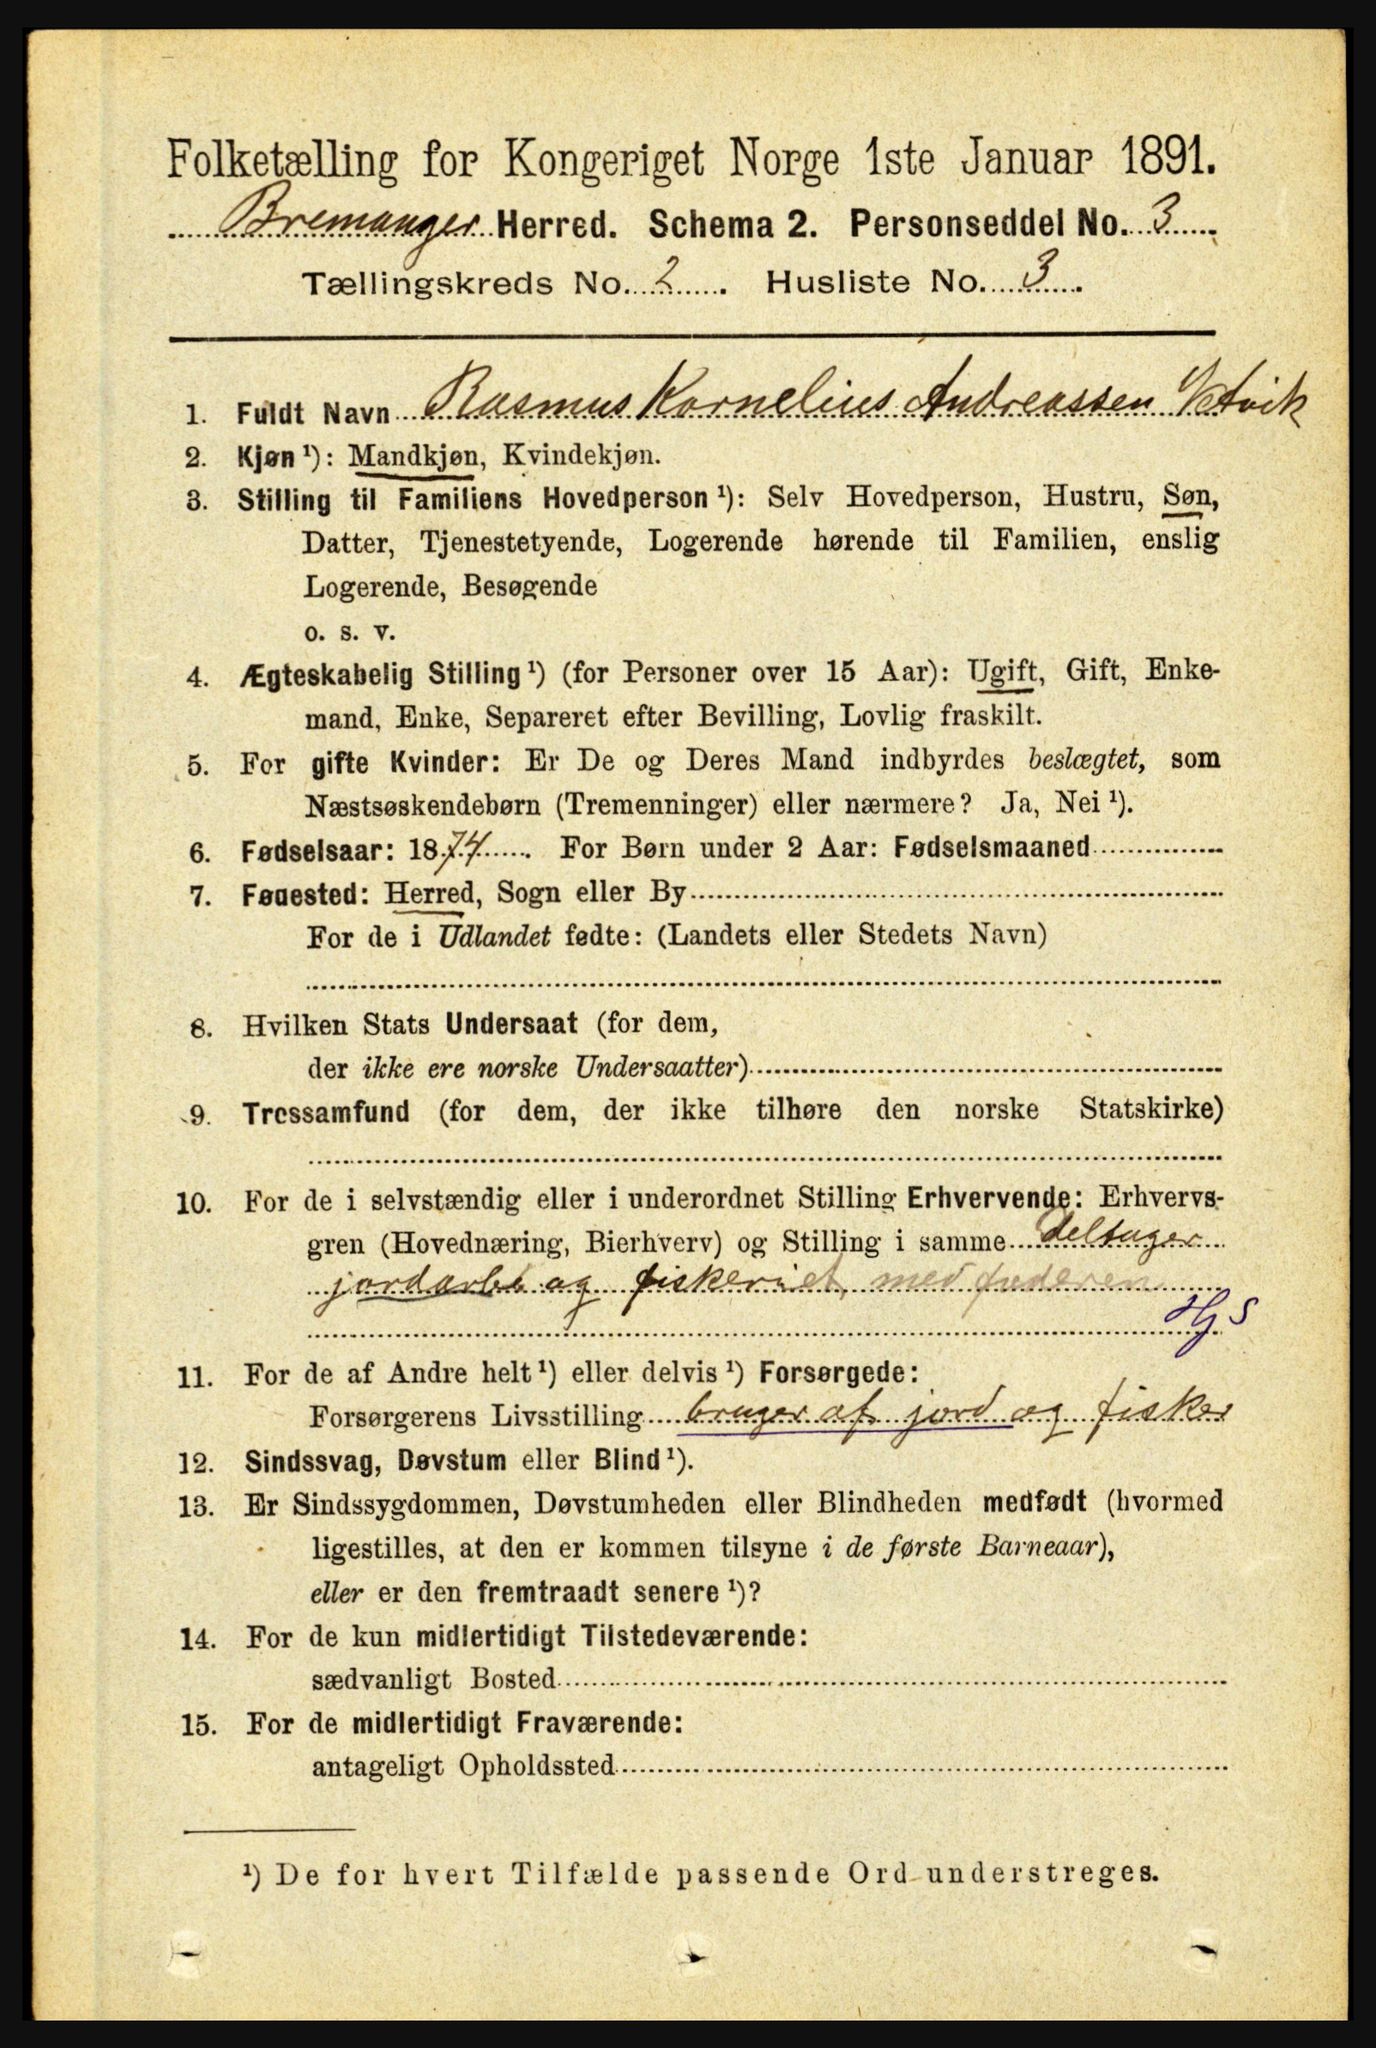 Folketælling for Kongeriget Norge 1ste Januar 1891.
Bremanger Herred. Schema 2. Personseddel No. 3
Tællingskreds No. 2. Husliste No. 3.
1. Fuldt Navn Rasmus Kornelius Andreassen
2. Kjøn ¹): Mandkjøn, Kvindekjøn.
3. Stilling til Familiens Hovedperson ¹): Selv Hovedperson, Hustru, Søn,
Datter, Tjenestetyende, Logerende hørende til Familien, enslig
Logerende, Besøgende
o. s. v.
4. Ægteskabelig Stilling ¹) (for Personer over 15 Aar): Ugift, Gift, Enke-
mand, Enke, Separeret efter Bevilling, Lovlig fraskilt.
5. For gifte Kvinder: Er De og Deres Mand indbyrdes beslægtet, som
Næstsøskendebørn (Tremenninger) eller nærmere? Ja, Nei ¹).
6. Fødselsaar: 1874. For Børn under 2 Aar: Fødselsmaaned
7. Fødested: Herred, Sogn eller By
For de i Udlandet fødte: (Landets eller Stedets Navn)
8. Hvilken Stats Undersaat (for dem,
der ikke ere norske Undersaatter)
9. Trossamfund (for dem, der ikke tilhøre den norske Statskirke)
10. For de i selvstændig eller i underordnet Stilling Erhvervende: Erhvervs-
gren (Hovednæring, Bierhverv) og Stilling i samme deltager
jordarb. og fiskeriet med faderen
HjS
11. For de af Andre helt ¹) eller delvis ¹) Forsørgede:
Forsørgerens Livsstilling bruger af jord og fisker
12. Sindssvag, Døvstum eller Blind ¹).
13. Er Sindssygdommen, Døvstumheden eller Blindheden medfødt (hvormed
ligestilles, at den er kommen tilsyne i de første Barneaar),
eller er den fremtraadt senere ¹)?
14. For de kun midlertidigt Tilstedeværende:
sædvanligt Bosted
15. For de midlertidigt Fraværende:
antageligt Opholdssted
¹) De for hvert Tilfælde passende Ord understreges.